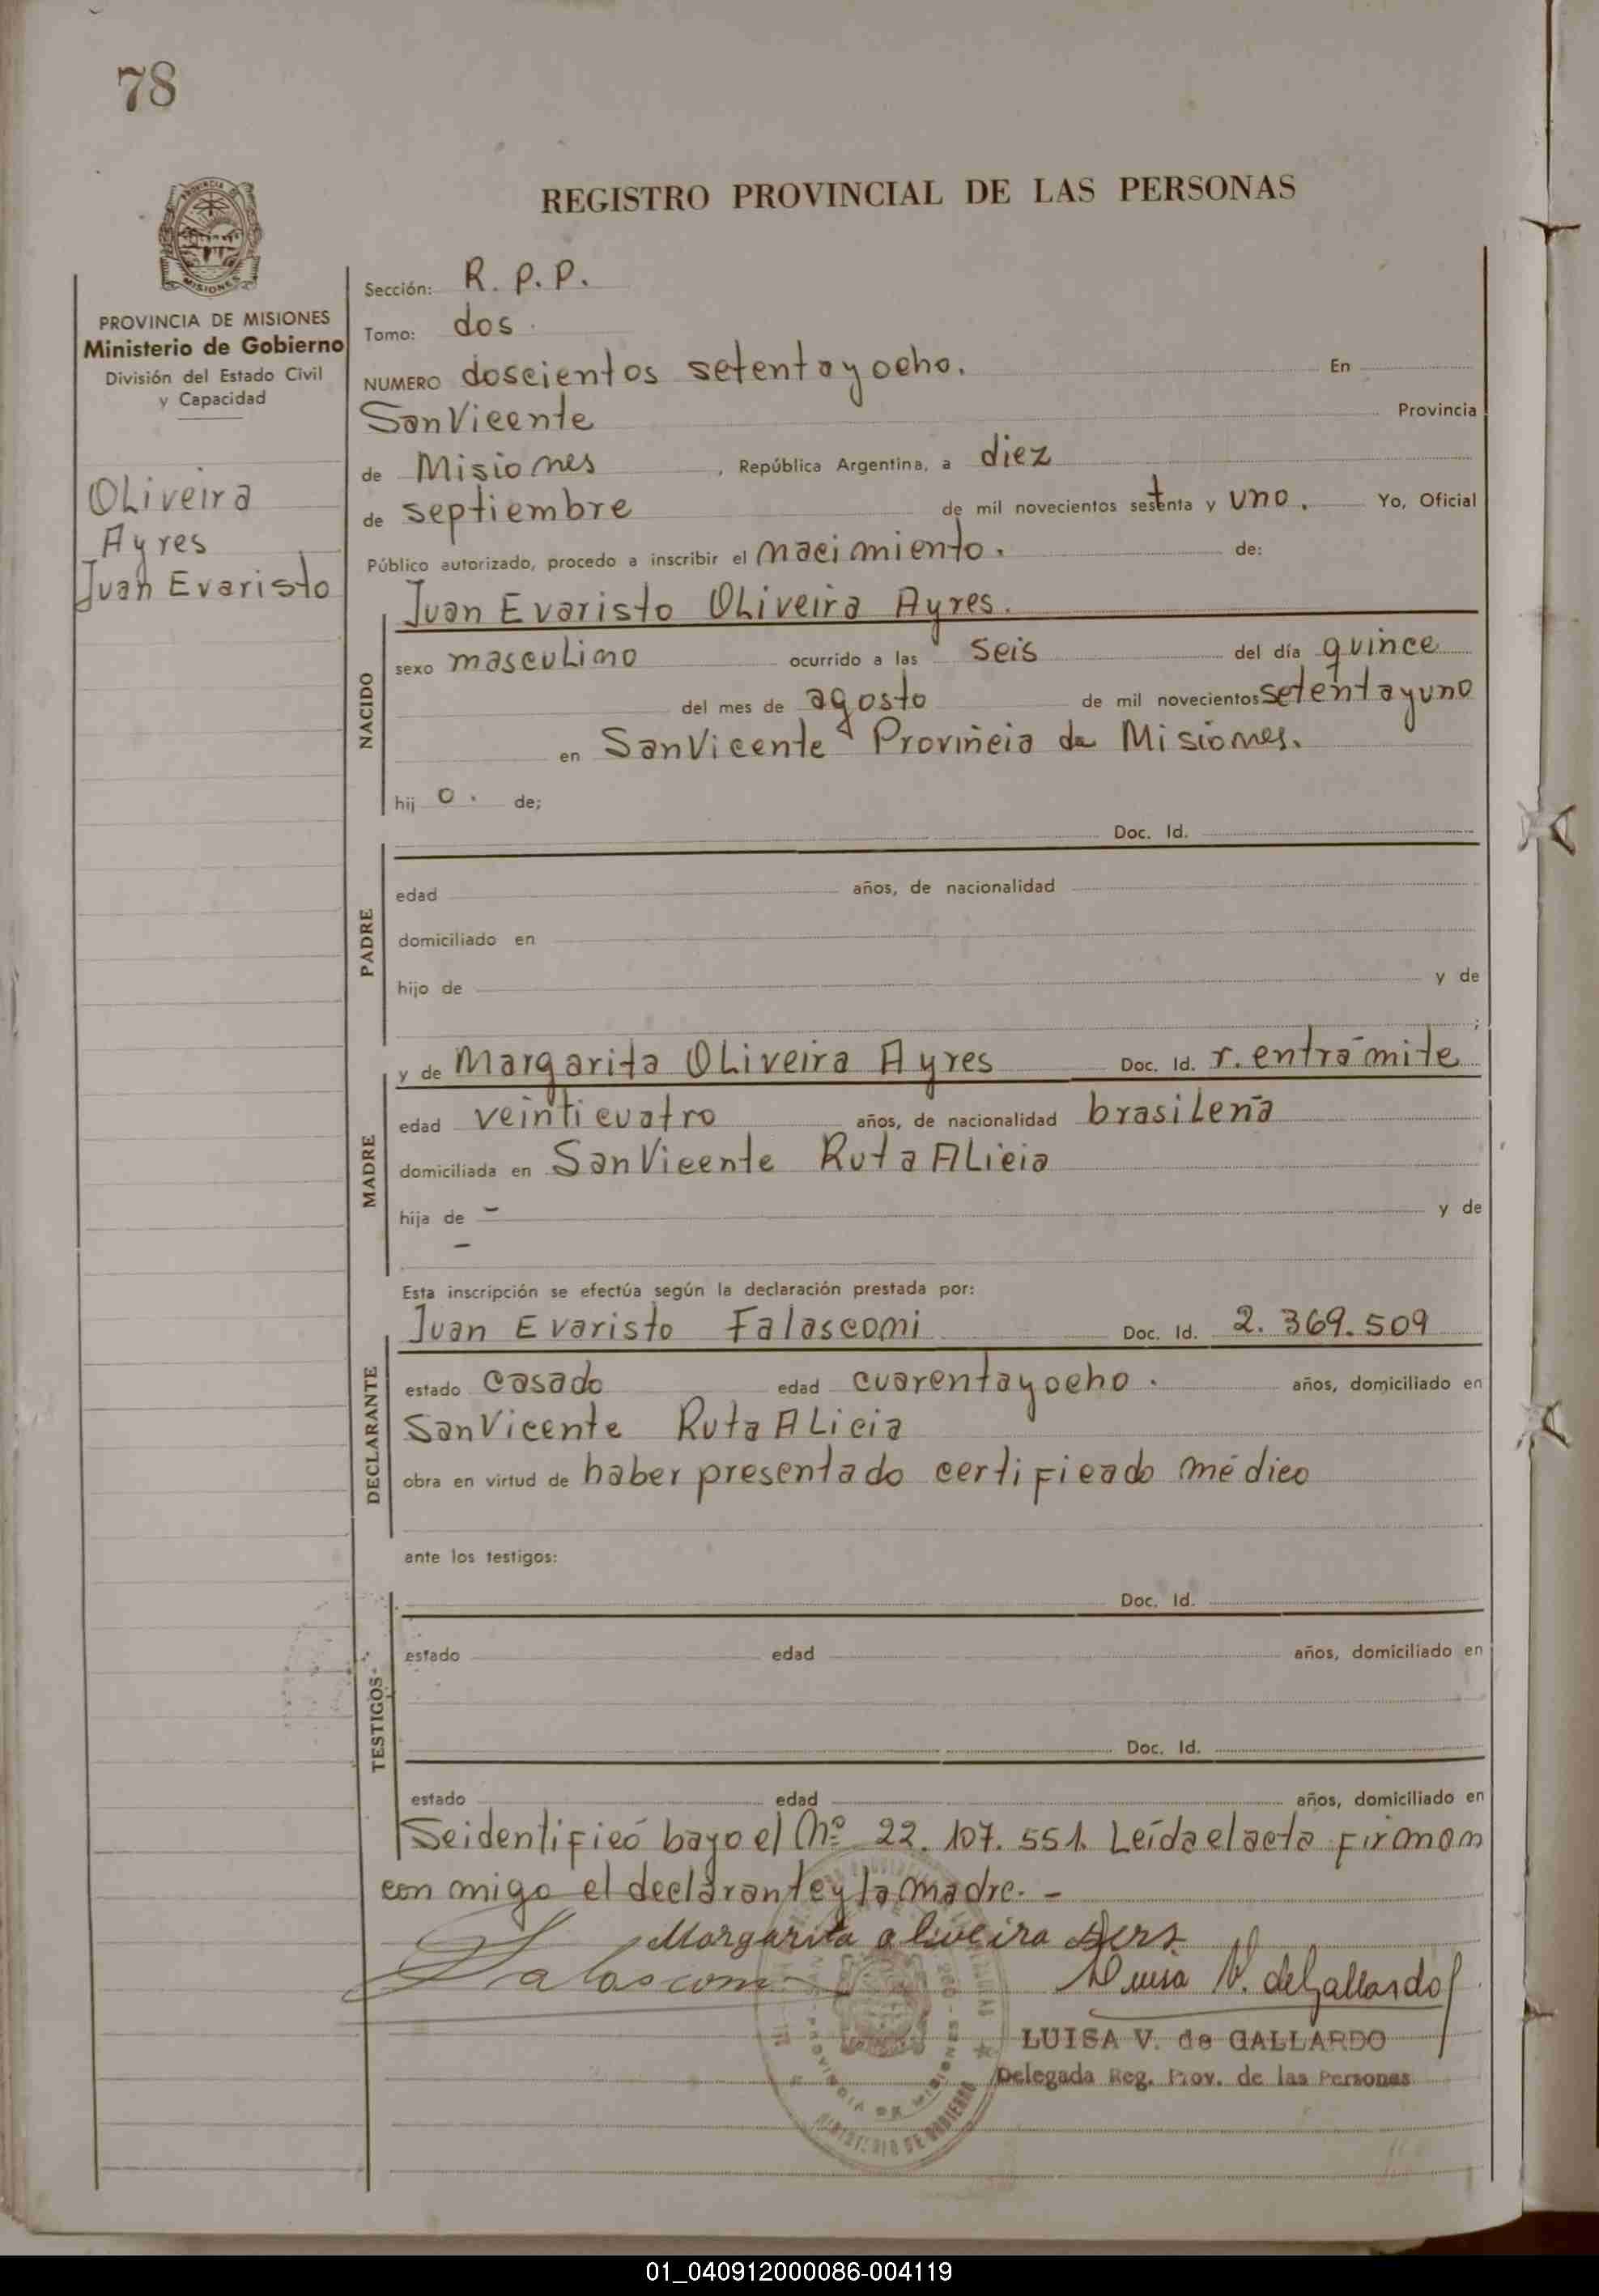 78
REGISTRO PROVINCIAL DE LAS PERSONAS
MISIONES
PROVINCIA DE MISIONES
Ministerio de Gobierno
División del Estado Civil
y Capacidad
Oliveira
Ayres
Juan Evaristo
Sección: R. P. P.
Tomo: dos.
NUMERO doscientos setenta y ocho. En
San Vicente Provincia
de Misiones, República Argentina, a diez
de septiembre de mil novecientos setenta y uno. Yo, Oficial
Público autorizado, procedo a inscribir el nacimiento. de:
NACIDO
Juan Evaristo Oliveira Ayres.
sexo masculino ocurrido a las seis del día quince
del mes de agosto de mil novecientos setenta y uno
en San Vicente Provincia de Misiones.
hij o. de;
PADRE
Doc. Id.
edad años, de nacionalidad
domiciliado en
hijo de y de
;
MADRE
y de Margarita Oliveira Ayres Doc. Id. r. en trámite
edad veinticuatro años, de nacionalidad brasileña
domiciliada en San Vicente Ruta Alicia
hija de - y de
-
Esta inscripción se efectúa según la declaración prestada por:
DECLARANTE
Juan Evaristo Falasconi Doc. Id. 2.369.509
estado casado edad cuarenta y ocho. años, domiciliado en
San Vicente Ruta Alicia
obra en virtud de haber presentado certificado médico
ante los testigos:
TESTIGOS
Doc. Id.
estado edad años, domiciliado en
Doc. Id.
estado edad años, domiciliado en
Se identificó bajo el Nº 22.107.551. Leída el acta firman
con migo el declarante y la madre. -
Margarita oliveira Aers
Falasconi Luisa V. de Gallardo
LUISA V. de GALLARDO
Delegada Reg. Prov. de las Personas
MINISTERIO DE GOBIERNO
01_040912000086-004119